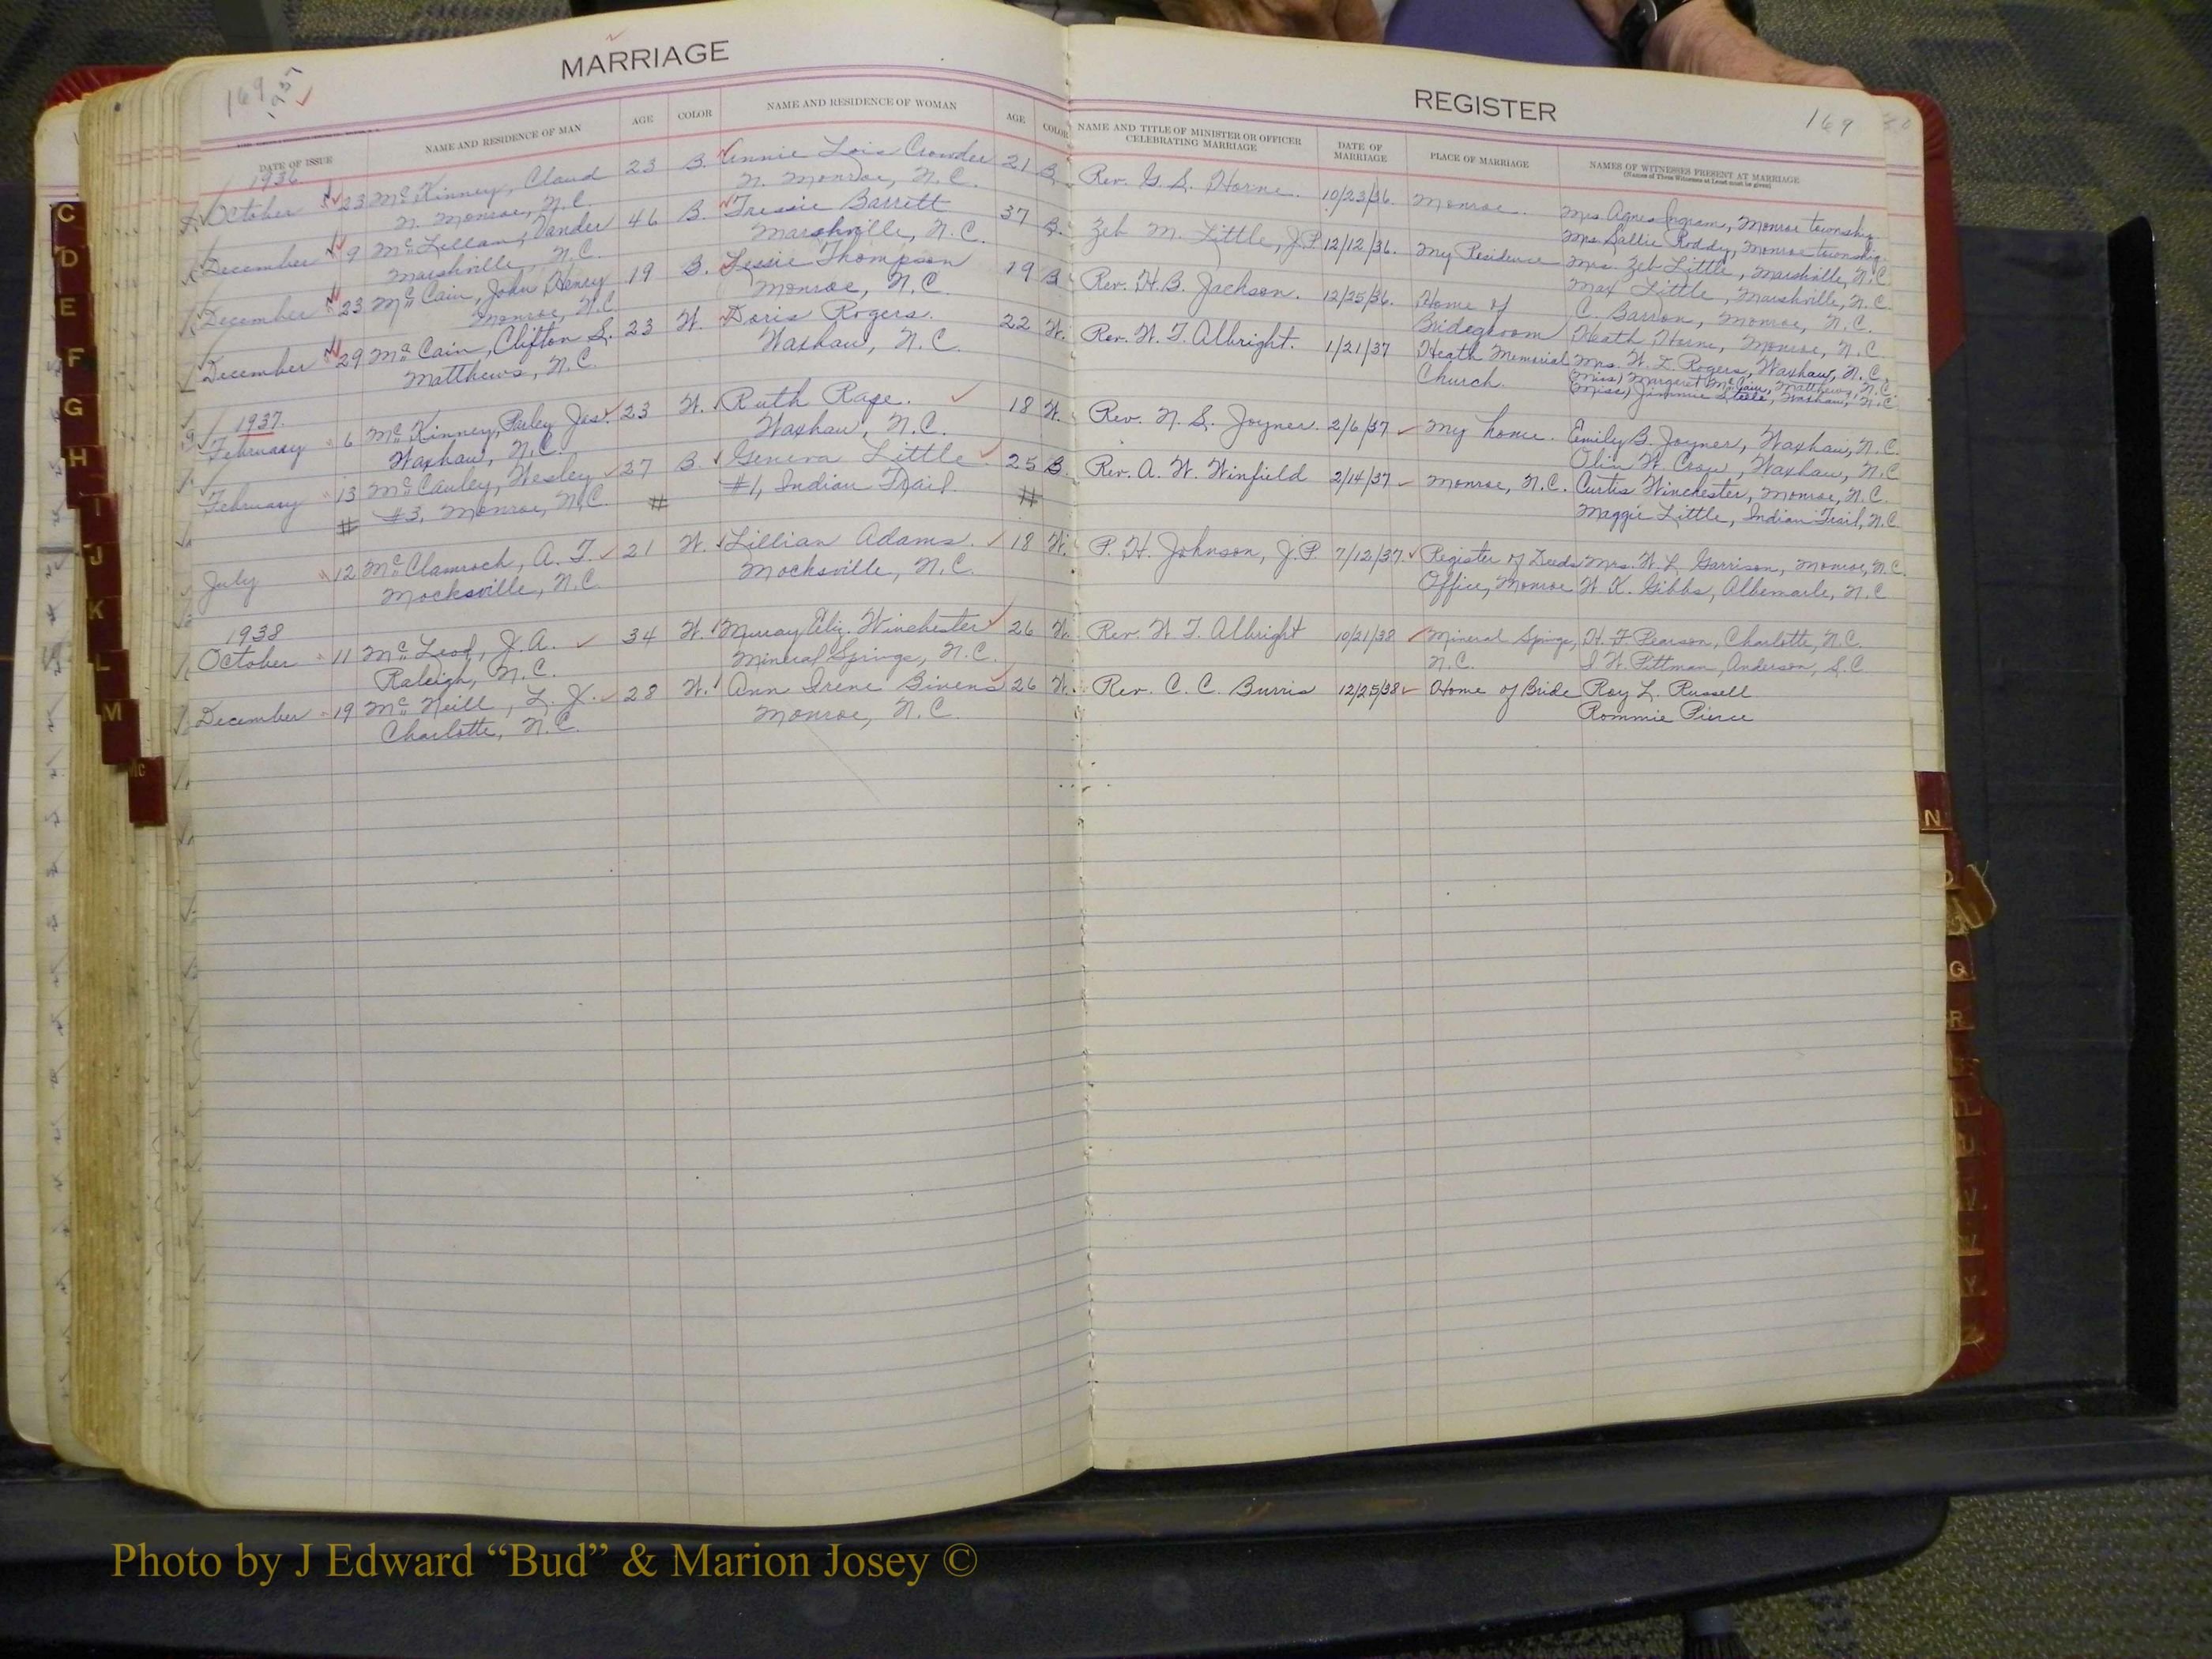 MARRIAGE
REGISTER
169
1937
169
DATE OF ISSUE
NAME AND RESIDENCE OF MAN
AGE
COLOR
NAME AND RESIDENCE OF WOMAN
AGE
COLOR
NAME AND TITLE OF MINISTER OR OFFICER
CELEBRATING MARRIAGE
DATE OF
MARRIAGE
PLACE OF MARRIAGE
NAMES OF WITNESSES PRESENT AT MARRIAGE
(Names of Three Witnesses at Least must be given)
1936
October 23 McKinney, Claud 23 B. Annie Lois Crowder 21 B. Rev. G. S. Horne. 10/23/36. Monroe. Mrs. Agnes Ingram, Monroe township
N. Monroe, N.C. N. Monroe, N.C. Mrs. Sallie Roddy, Monroe township
December 9 McLellan, Vander 46 B. Tressie Barrett 37 B. Zeb M. Little, J.P. 12/12/36. My Residence Mrs. Zeb Little, Marshville, N.C.
Marshville, N.C. Marshville, N.C. Max Little, Marshville, N.C.
December 23 McCain, John Henry 19 B. Lessie Thompson 19 B. Rev. H. B. Jackson. 12/25/36. Home of C. Barron, Monroe, N.C.
Monroe, N.C. Monroe, N.C. Bridegroom Heath Horne, Monroe, N.C.
December 29 McCain, Clifton S. 23 W. Doris Rogers. 22 W. Rev. W. T. Albright. 1/21/37 Heath Memorial Mrs. W. L. Rogers, Waxhaw, N.C.
Matthews, N.C. Waxhaw, N.C. Church. (Miss) Margaret McCain, Matthews, N.C.
(Miss) Jimmie Steele, Waxhaw, N.C.
1937.
February 6 McKinney, Parley Jas. 23 W. Ruth Rape. 18 W. Rev. N. S. Joyner. 2/6/37 My home. Emily B. Joyner, Waxhaw, N.C.
Waxhaw, N.C. Waxhaw, N.C. Olin W. Waxhaw, N.C
February 13 McCauley, Wesley 27 B. Geneva Little 25 B. Rev. A. W. Winfield 2/14/37 Monroe, N.C. Curtis Winchester, Monroe, N.C.
# #3, Monroe, N.C. # #1, Indian Trail # Maggie Little, Indian Trail, N.C
July 12 McClamroch, A. T. 21 W. Lillian Adams. 18 W. P. H. Johnson, J.P. 7/12/37. Register of Deeds Mrs. W. L. Garrison, Monroe, N.C.
Mocksville, N.C. Mocksville, N.C. Office, Monroe W. K. Gibbs, Albemarle, N.C
1938
October 11 McLeod, J. A. 34 W. Murray Eliz. Winchester 26 W. Rev. W. T. Albright 10/21/38 Mineral Springs, H. F. Pearson, Charlotte, N.C.
Raleigh, N.C. Mineral Springs, N.C. N.C. I. W. Pittman, Anderson, S.C
December 19 McNeill, L. J. 28 W. Ann Irene Bivens 26 W. Rev. C. C. Burris 12/25/38 Home of Bride Roy L. Russell
Charlotte, N.C. Monroe, N.C. Rommie Pierce
C
D
E
F
G
H
I
J
K
L
M
Mc
N
Q
R
Photo by J Edward “Bud” & Marion Josey ©